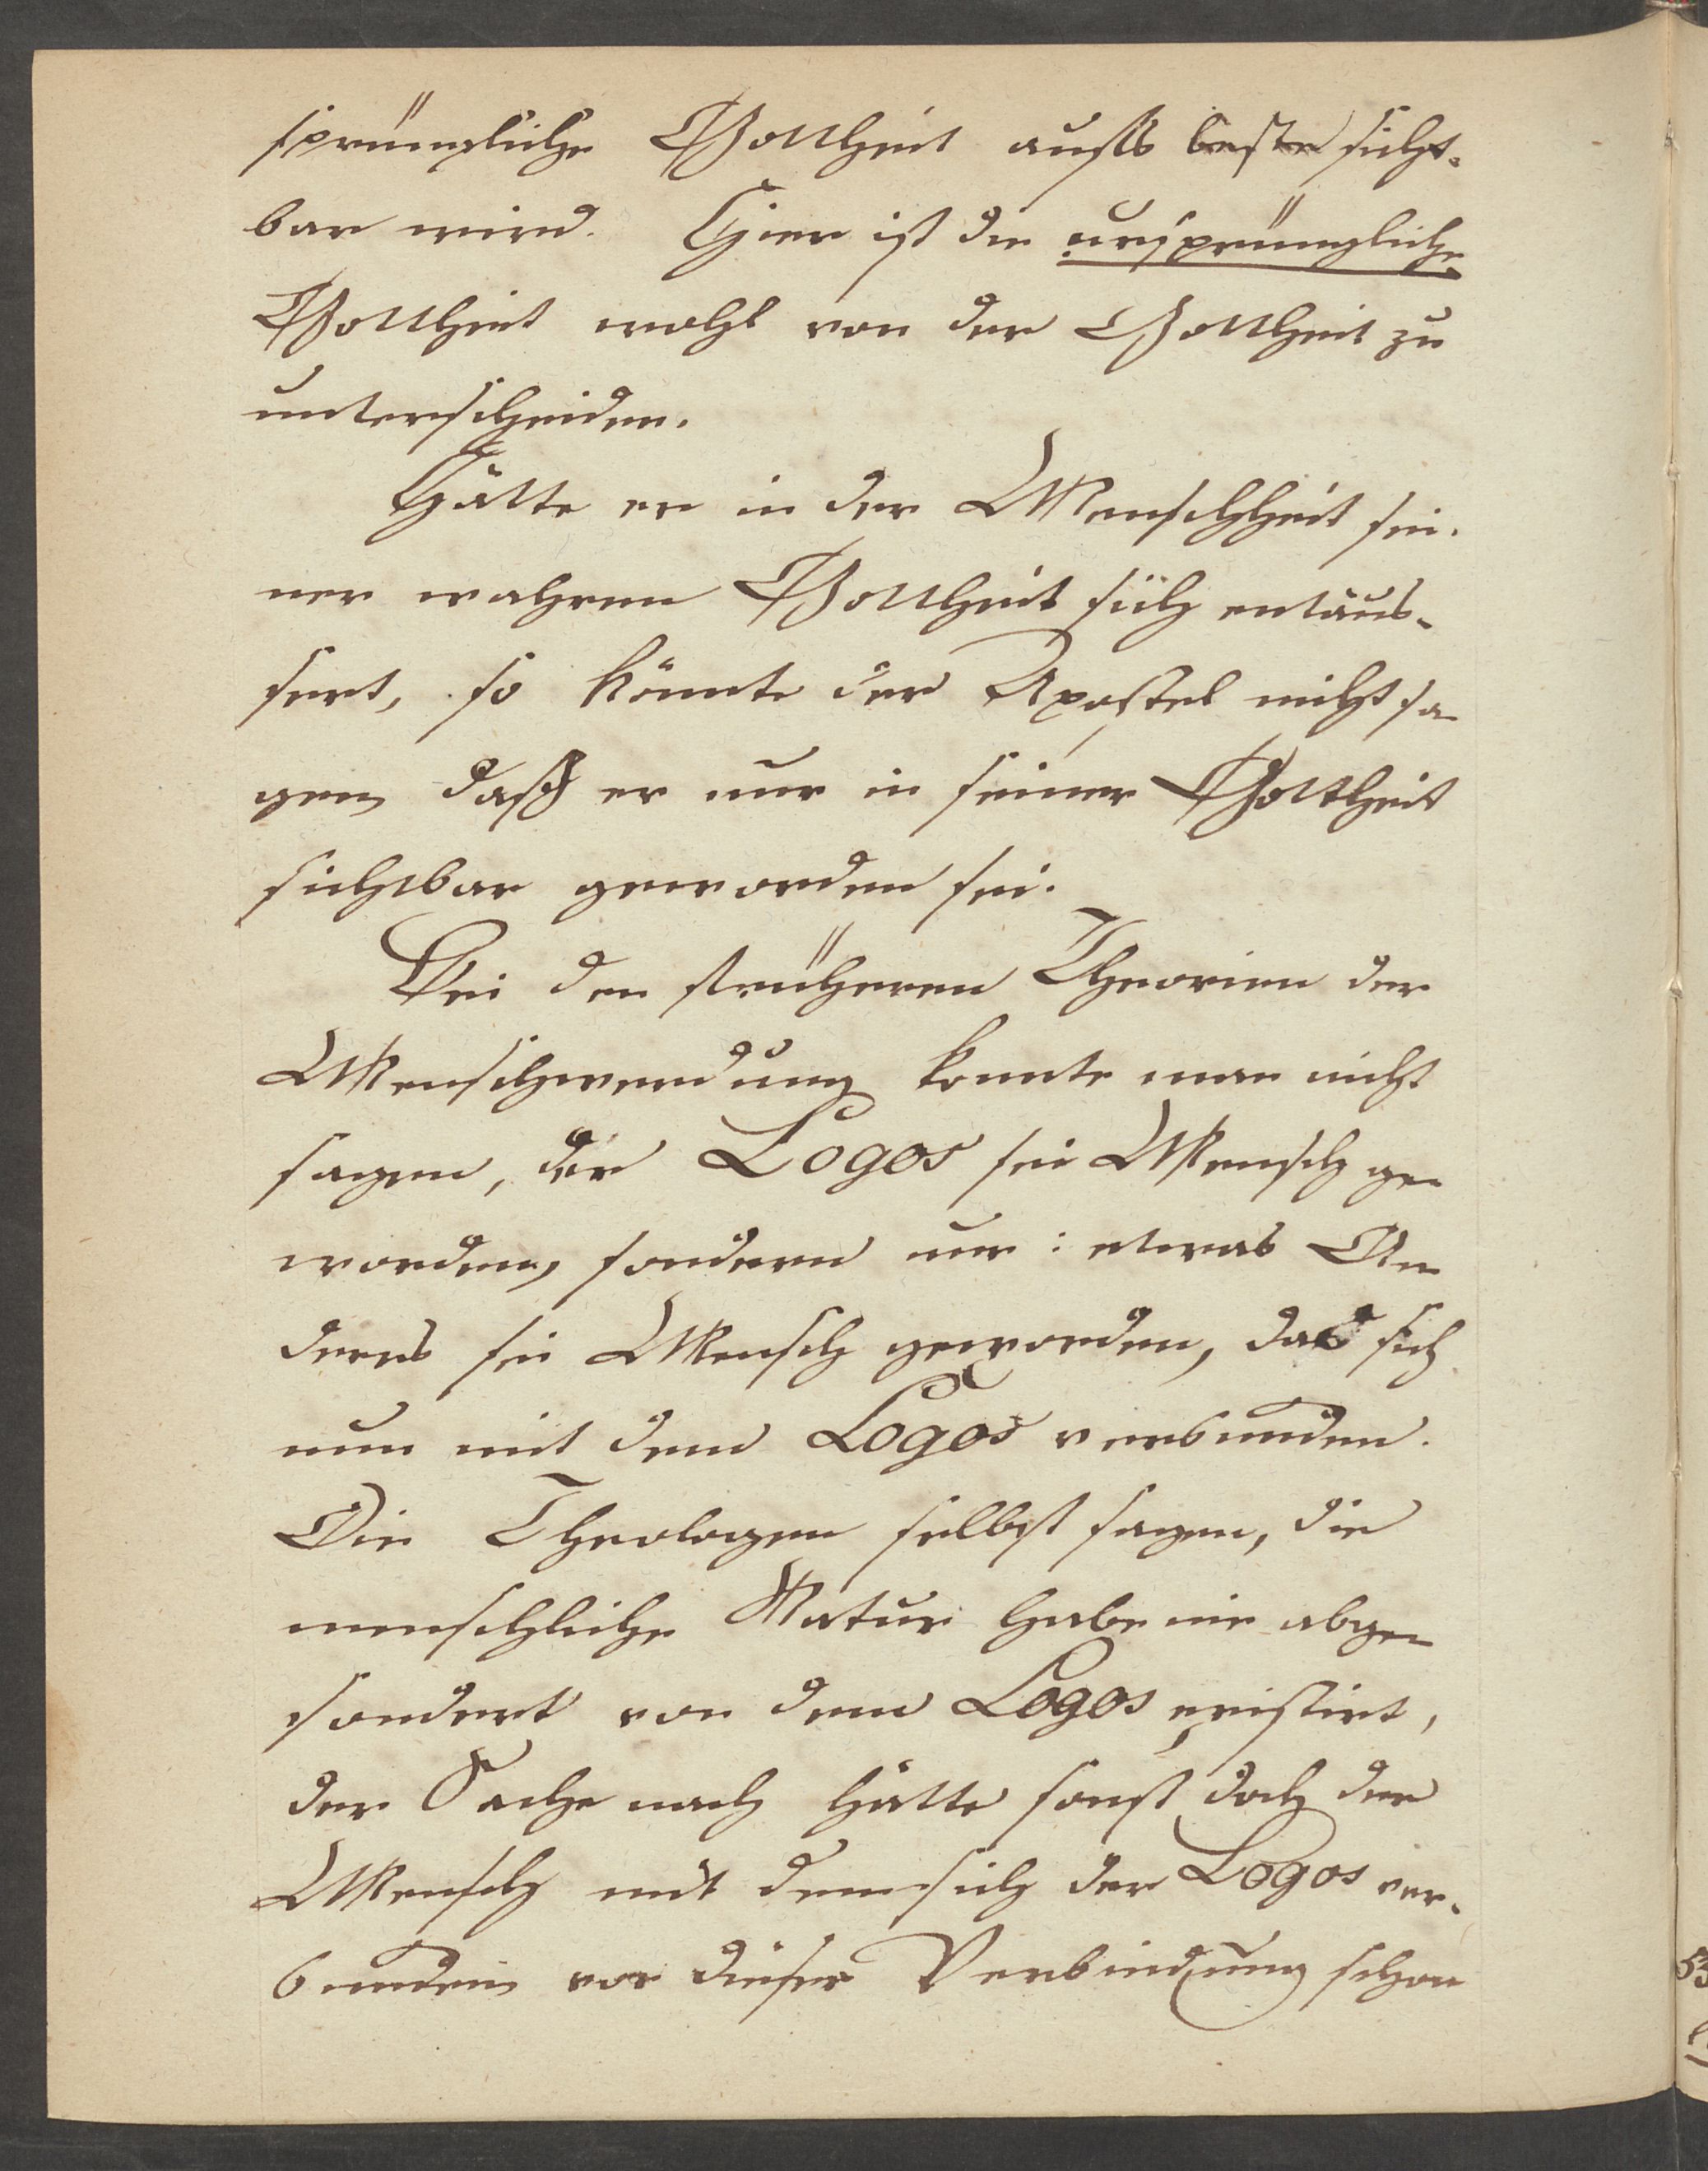 sprüngliche Gottheit aufs beste sicht-
bar wird. Hier ist die ursprüngliche
Gottheit wohl von der Gottheit zu
unterscheiden.
Hätte er in der Menschheit sei-
ner wahren Gottheit sich entäus-
sert, so könnte der Apostel nicht sa-
gen, daß er nur in seiner Gottheit
sichtbar geworden sei.
Bei den früheren Theorien der
Menschwerdung konnte man nicht
sagen, der Logos sei Mensch ge-
worden, sondern nur: etwas An-
deres sei Mensch geworden, das sich
nun mit dem Logos verbunden.
Die Theologen selbst sagen, die
menschliche Natur habe nie abge-
sondert von dem Logos existirt,
der Sache nach hätte sonst doch der
Mensch mit dem sich der Logos ver-
bunden vor dieser Verbindung schon